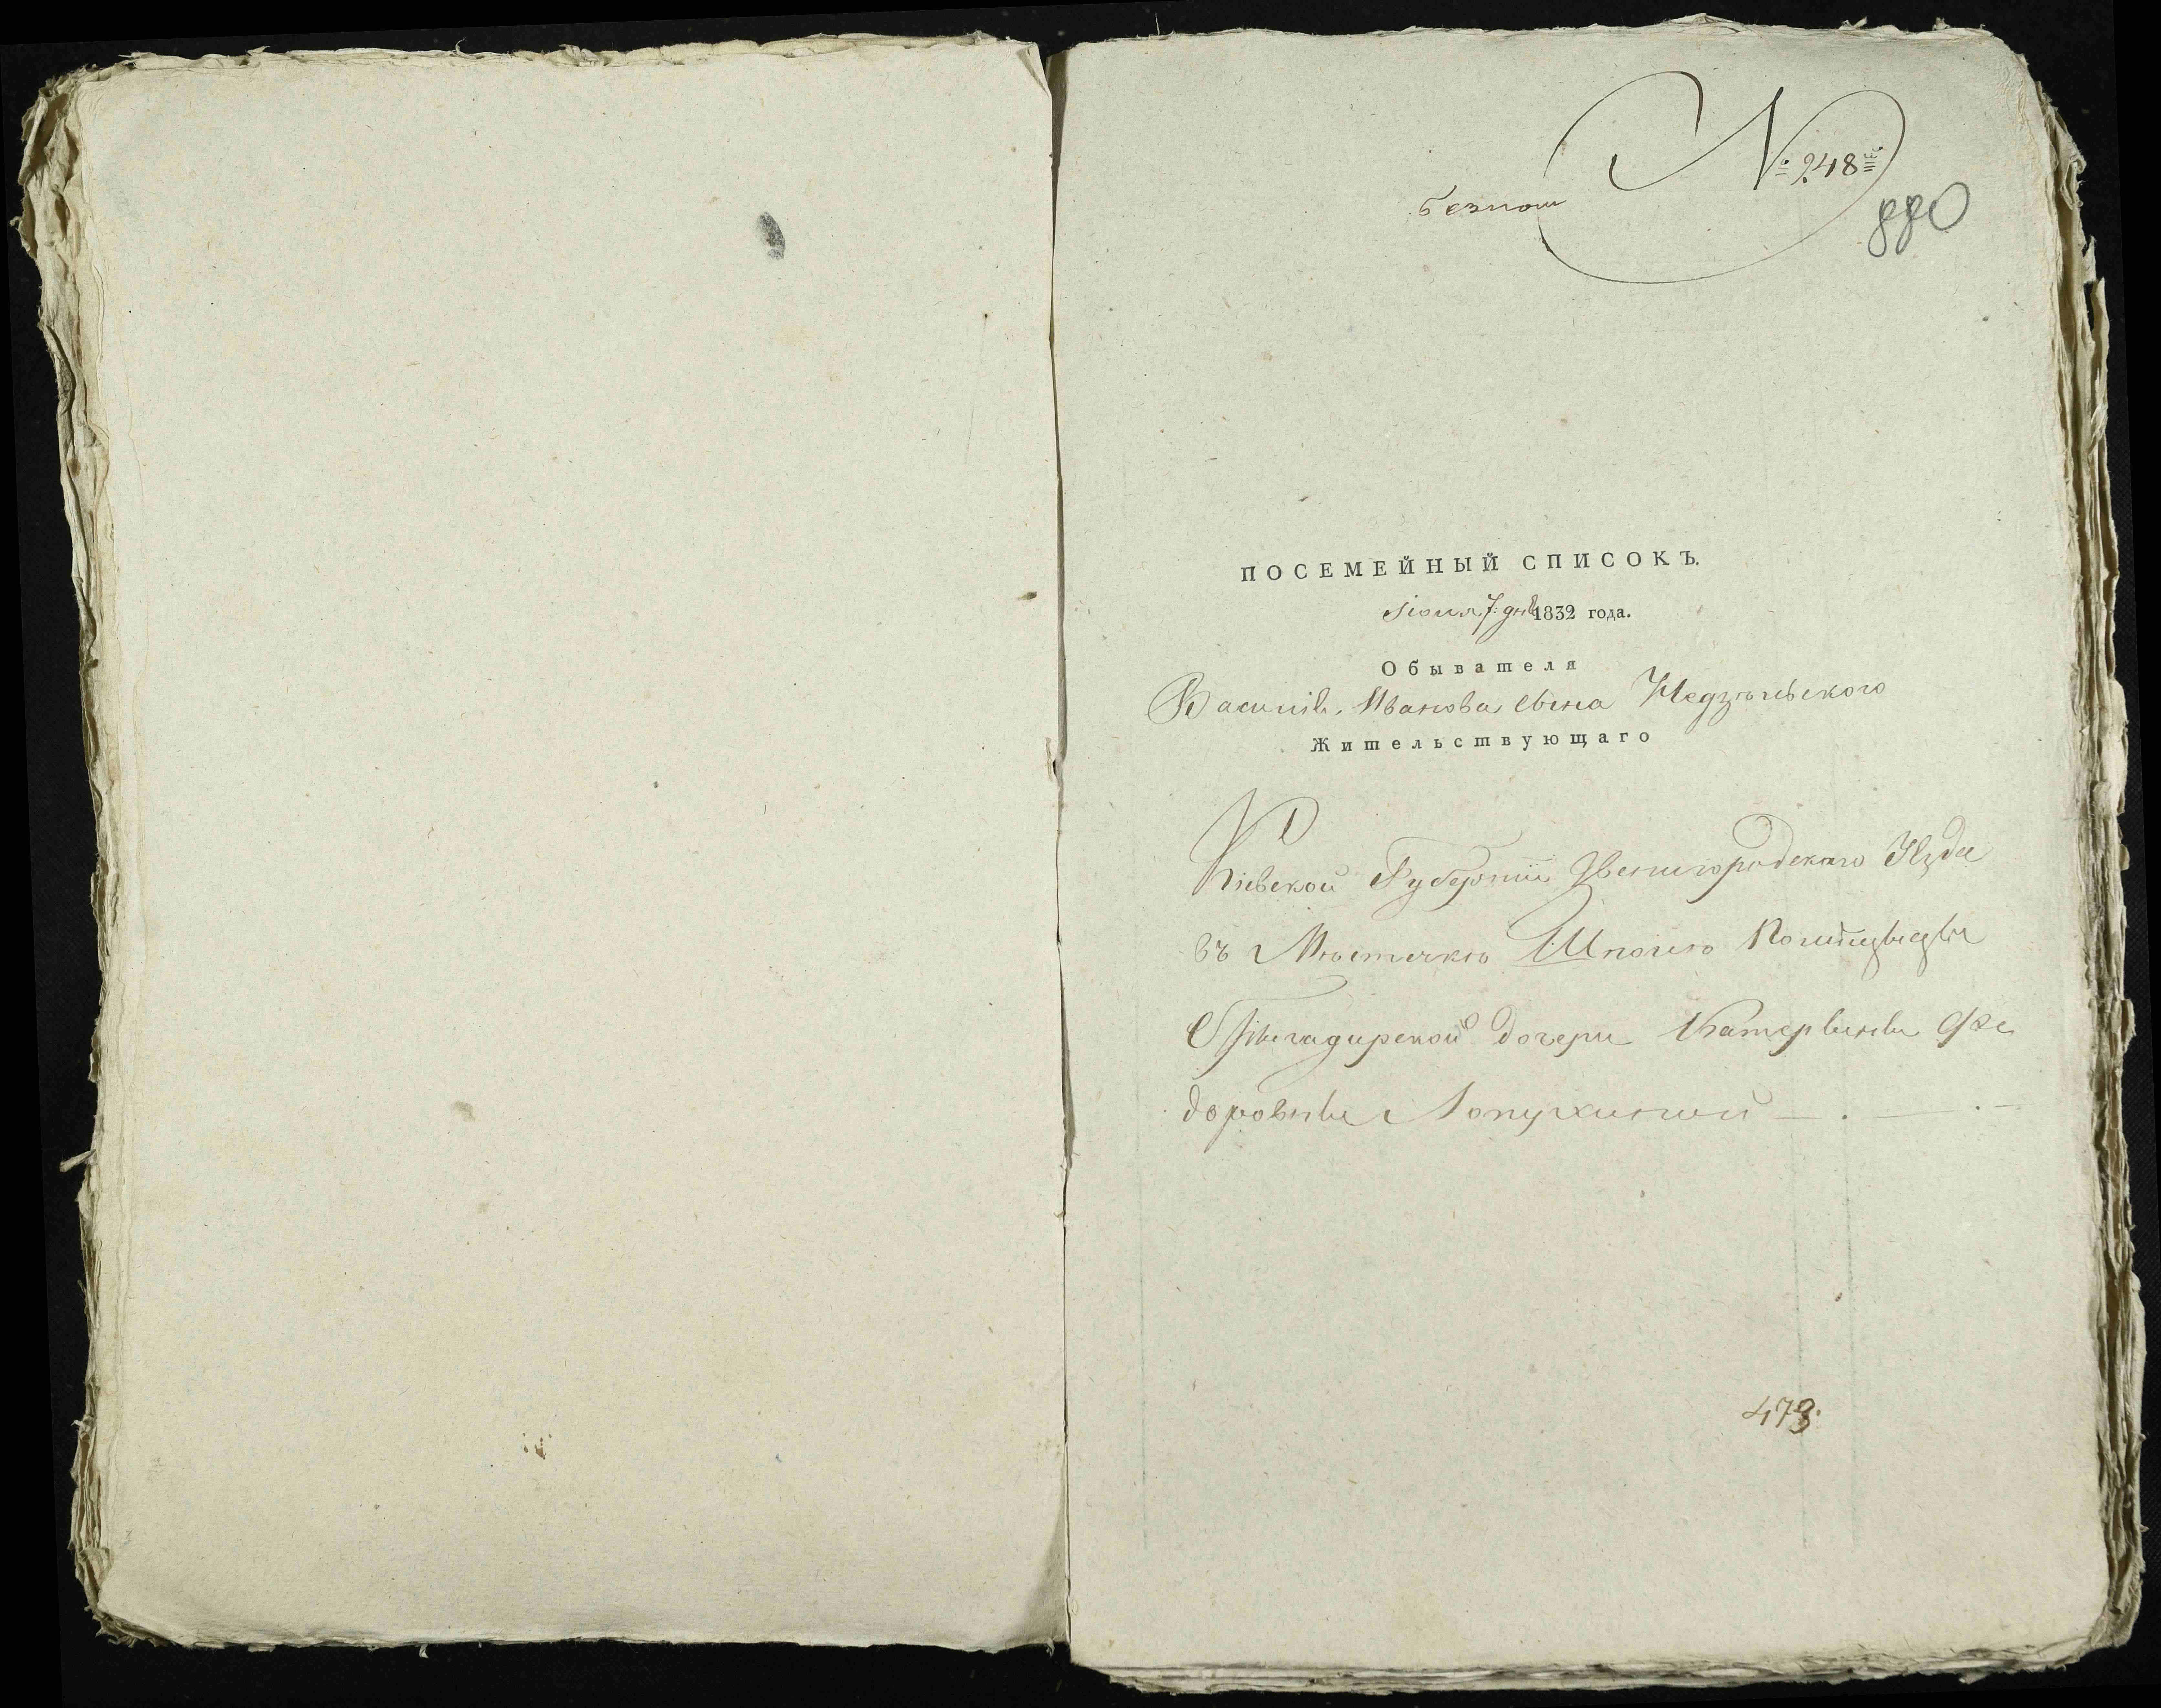 № 248
безпош
880
ПОСЕМЕЙНЫЙ СПИСОКЪ.
Іюня 7: дня 1832 года.
Обывателя
Василія Иванова сына Недзѣльского
Жительствующаго
Кіевской Губерніи Звенигородского Уѣзда
въ Мѣстечкѣ Шполѣ
Бригадирской дочери Катерины Фе
доровны Лопухиной
473.